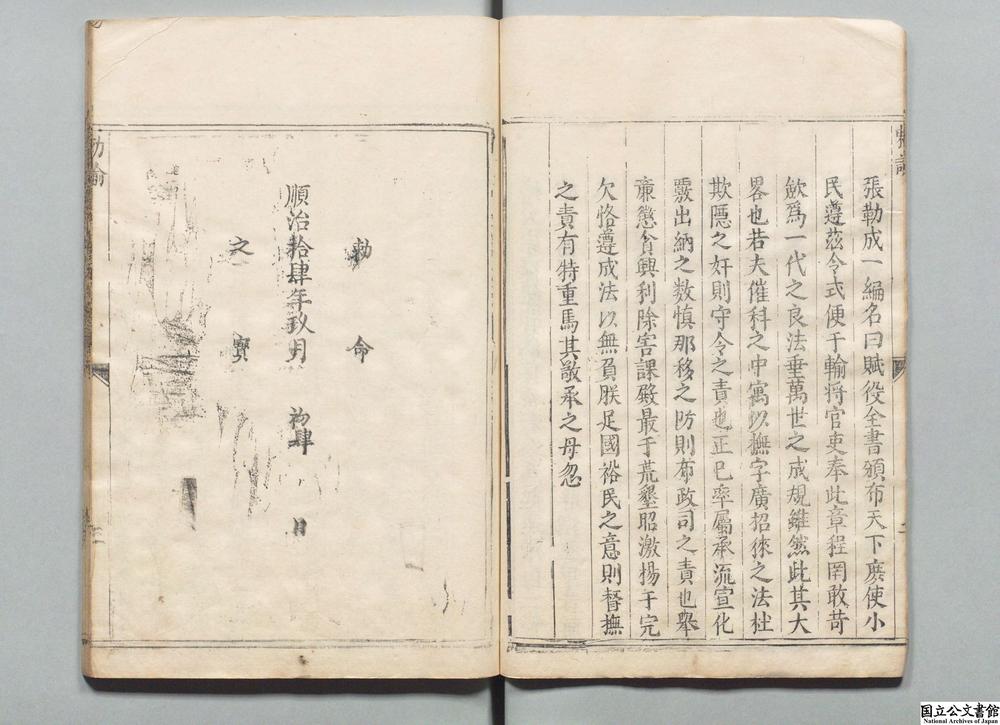 張勒成一編名曰賦役全書頒布天下庶使小
民遵茲令式便于輸将官吏奉此章程罔敢苛
歛爲一代之良法垂萬世之成規雖然此其大
畧也若夫催科之中寓以撫字廣招徠之法杜
欺隱之奸則守令之責也正巳率屬承流宣化
覈出納之数慎那移之防則布政司之責也舉
亷懲貪興利除害課殿最于荒墾昭激揚于完
欠恪遵成法以無負朕足國裕民之意則督撫
之責有特重焉其敬承之毋忽
勅命
順治拾肆年玖月 初肆 日
之寳
勅諭
三
二
国立公文書館
National Archives of Japan